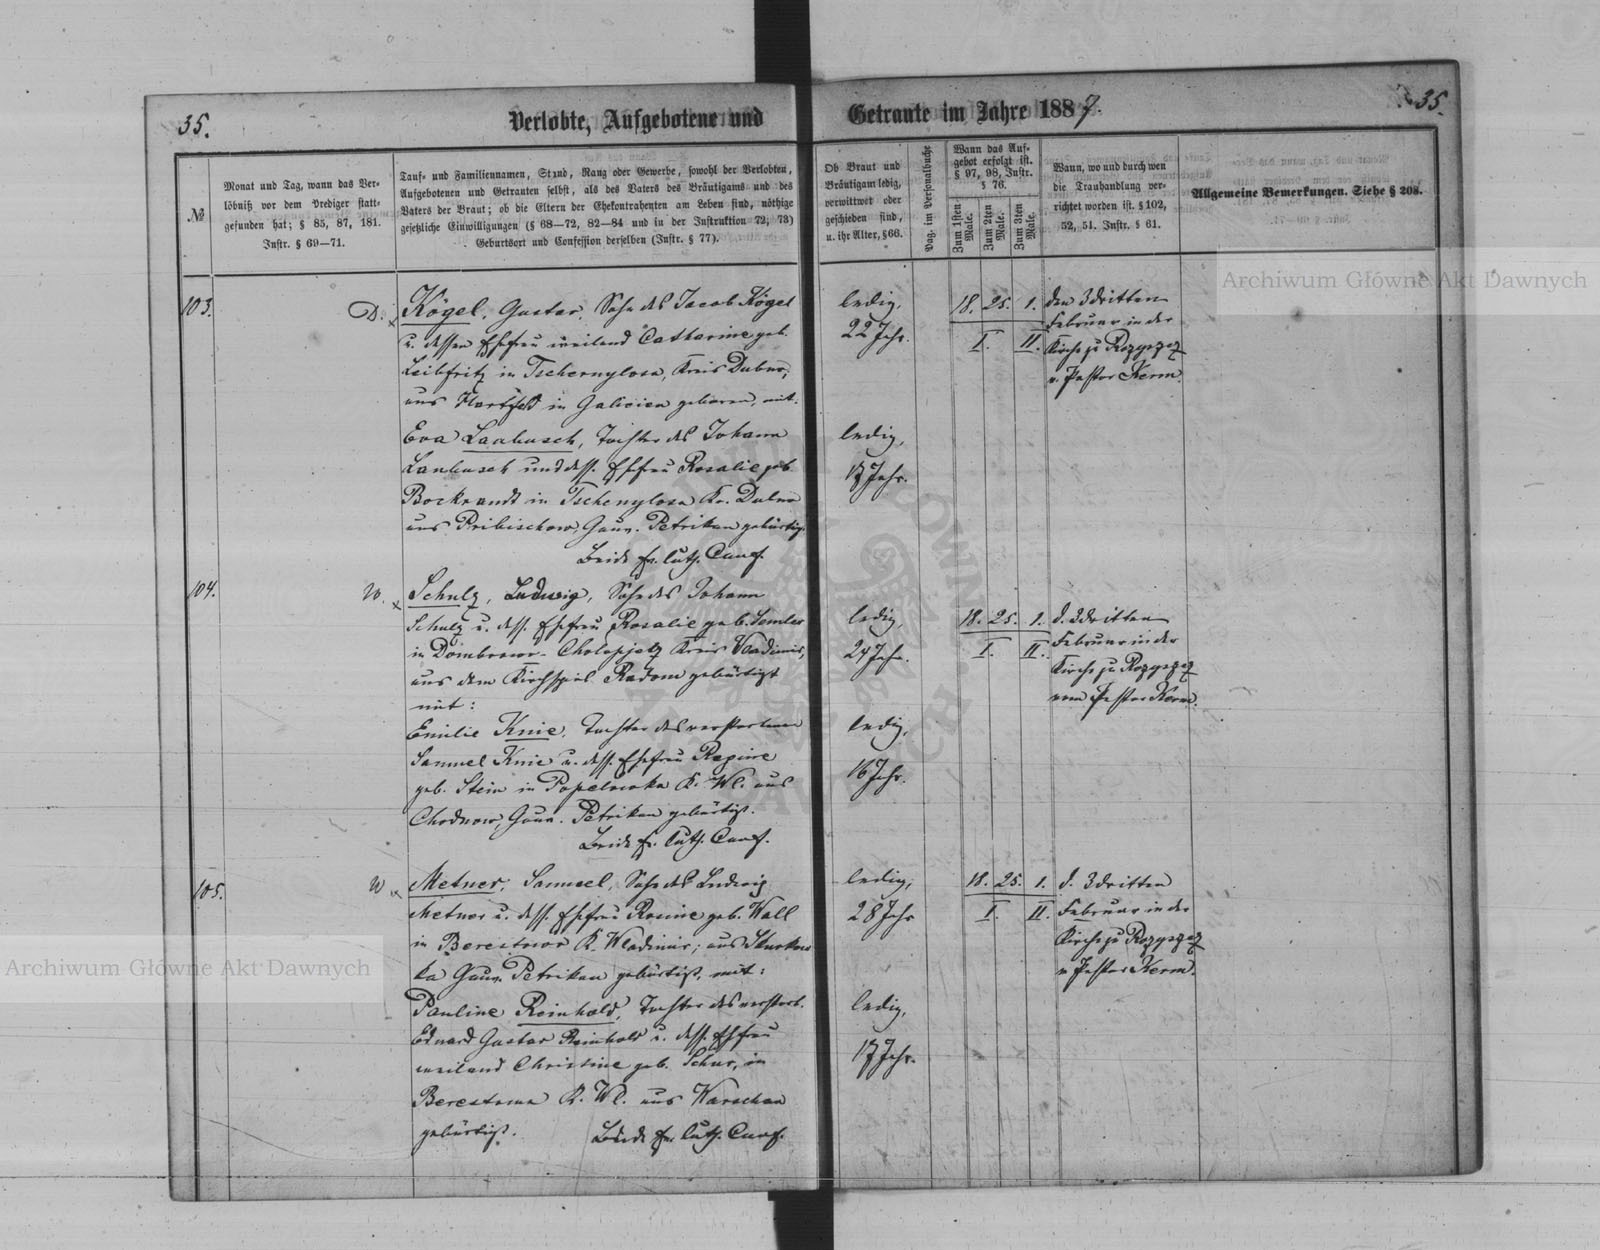 35.
Verlobte, Aufgebotene und
Getraute im Jahre 1887.
35.
№
Monat und Tag, wann das Ver-
löbniß vor dem Prediger statt-
gefunden hat; § 85, 87, 181.
Instr. § 69—71.
Tauf- und Familiennamen, Stand, Rang oder Gewerbe, sowohl der Verlobten,
Aufgebotenen und Getrauten selbst, als des Vaters des Bräutigams und des
Vaters der Braut; ob die Eltern der Ehekontrahenten am Leben sind, nöthige
gesetzliche Einwilligungen (§ 68—72, 82—84 und in der Instruktion 72, 73)
Geburtsort und Confession derselben (Instr. § 77).
Ob Braut und
Bräutigam ledig,
verwittwet oder
geschieden sind,
u. ihr Alter, § 66.
Pag. im Personalbuche
Wann das Auf-
gebot erfolgt ist.
§ 97, 98, Instr.
§ 76.
Zum 1sten Male.
Zum 2ten Male.
Zum 3ten Male.
Wann, wo und durch wen
die Trauhandlung ver-
richtet worden ist. § 102,
52, 51. Instr. § 61.
Allgemeine Bemerkungen. Siehe § 208.
103.
D. x
Kögel, Gustav, Sohn des Jacob Kögel
u. dessen Ehefrau weiland Catharine geb.
Leibfritz in Tschernylosa, Kreis Dubno,
aus Hartfeld in Galicien geboren, mit.
Eva Laubusch, Tochter des Johann
Laubusch und dess. Ehefrau Rosalie geb.
in Tschenylosa Kr. Dubno
aus Pribischow, Gouv. Petrikau gebürtig.
Beide ev. luth. Conf.
ledig,
22 Jahr.
ledig,
17 Jahr.
18. 25. 1.
I. II.
den 3 dritten
Februar in der
Kirche zu Rozyszcz
v. Pastor Kerm.
104.
W. x
Schulz, Ludwig, Sohn des Johann
Schulz u. dess. Ehefrau Rosalie geb. Semler
in Dombrowo-Cholopjetz Kreis Wladimir,
aus dem Kirchspiel Radom gebürtigt
mit:
Emilie Knie, Tochter des verstorbenen
Samuel Knie u. dess. Ehefrau Regine
geb. Stein in Popelowka K. Wl. aus
Chodnow, Gouv. Petrikau gebürtigt.
Beide ev. luth. Conf.
ledig,
24 Jahr.
ledig,
16 Jahr.
18. 25. 1.
I. II.
d. 3 dritten
Februar in der
Kirche zu Rozyszcz
vom Pastor Kerm.
105.
W x
Metner, Samuel, Sohn des Ludwig
Metner u. dess. Ehefrau Rosine geb. Wall
in Berestnow K. Wladimir; aus
ka Gouv. Petrikau gebürtigt, mit:
Pauline Reinhold, Tochter des verstorb.
Eduard Gustav Reinhold u. dess. Ehefrau
weiland Christine geb. Schur, in
K. Wl. aus Warschau
gebürtigt. Beide ev. luth. Conf.
ledig,
28 Jahr
ledig,
17 Jahr.
18. 25. 1.
I. II.
d. 3 dritten
Februar in der
Kirche zu Rozyszcz
v Pastor Kerm.
Archiwum Główne Akt Dawnych
Archiwum Główne Akt Dawnych